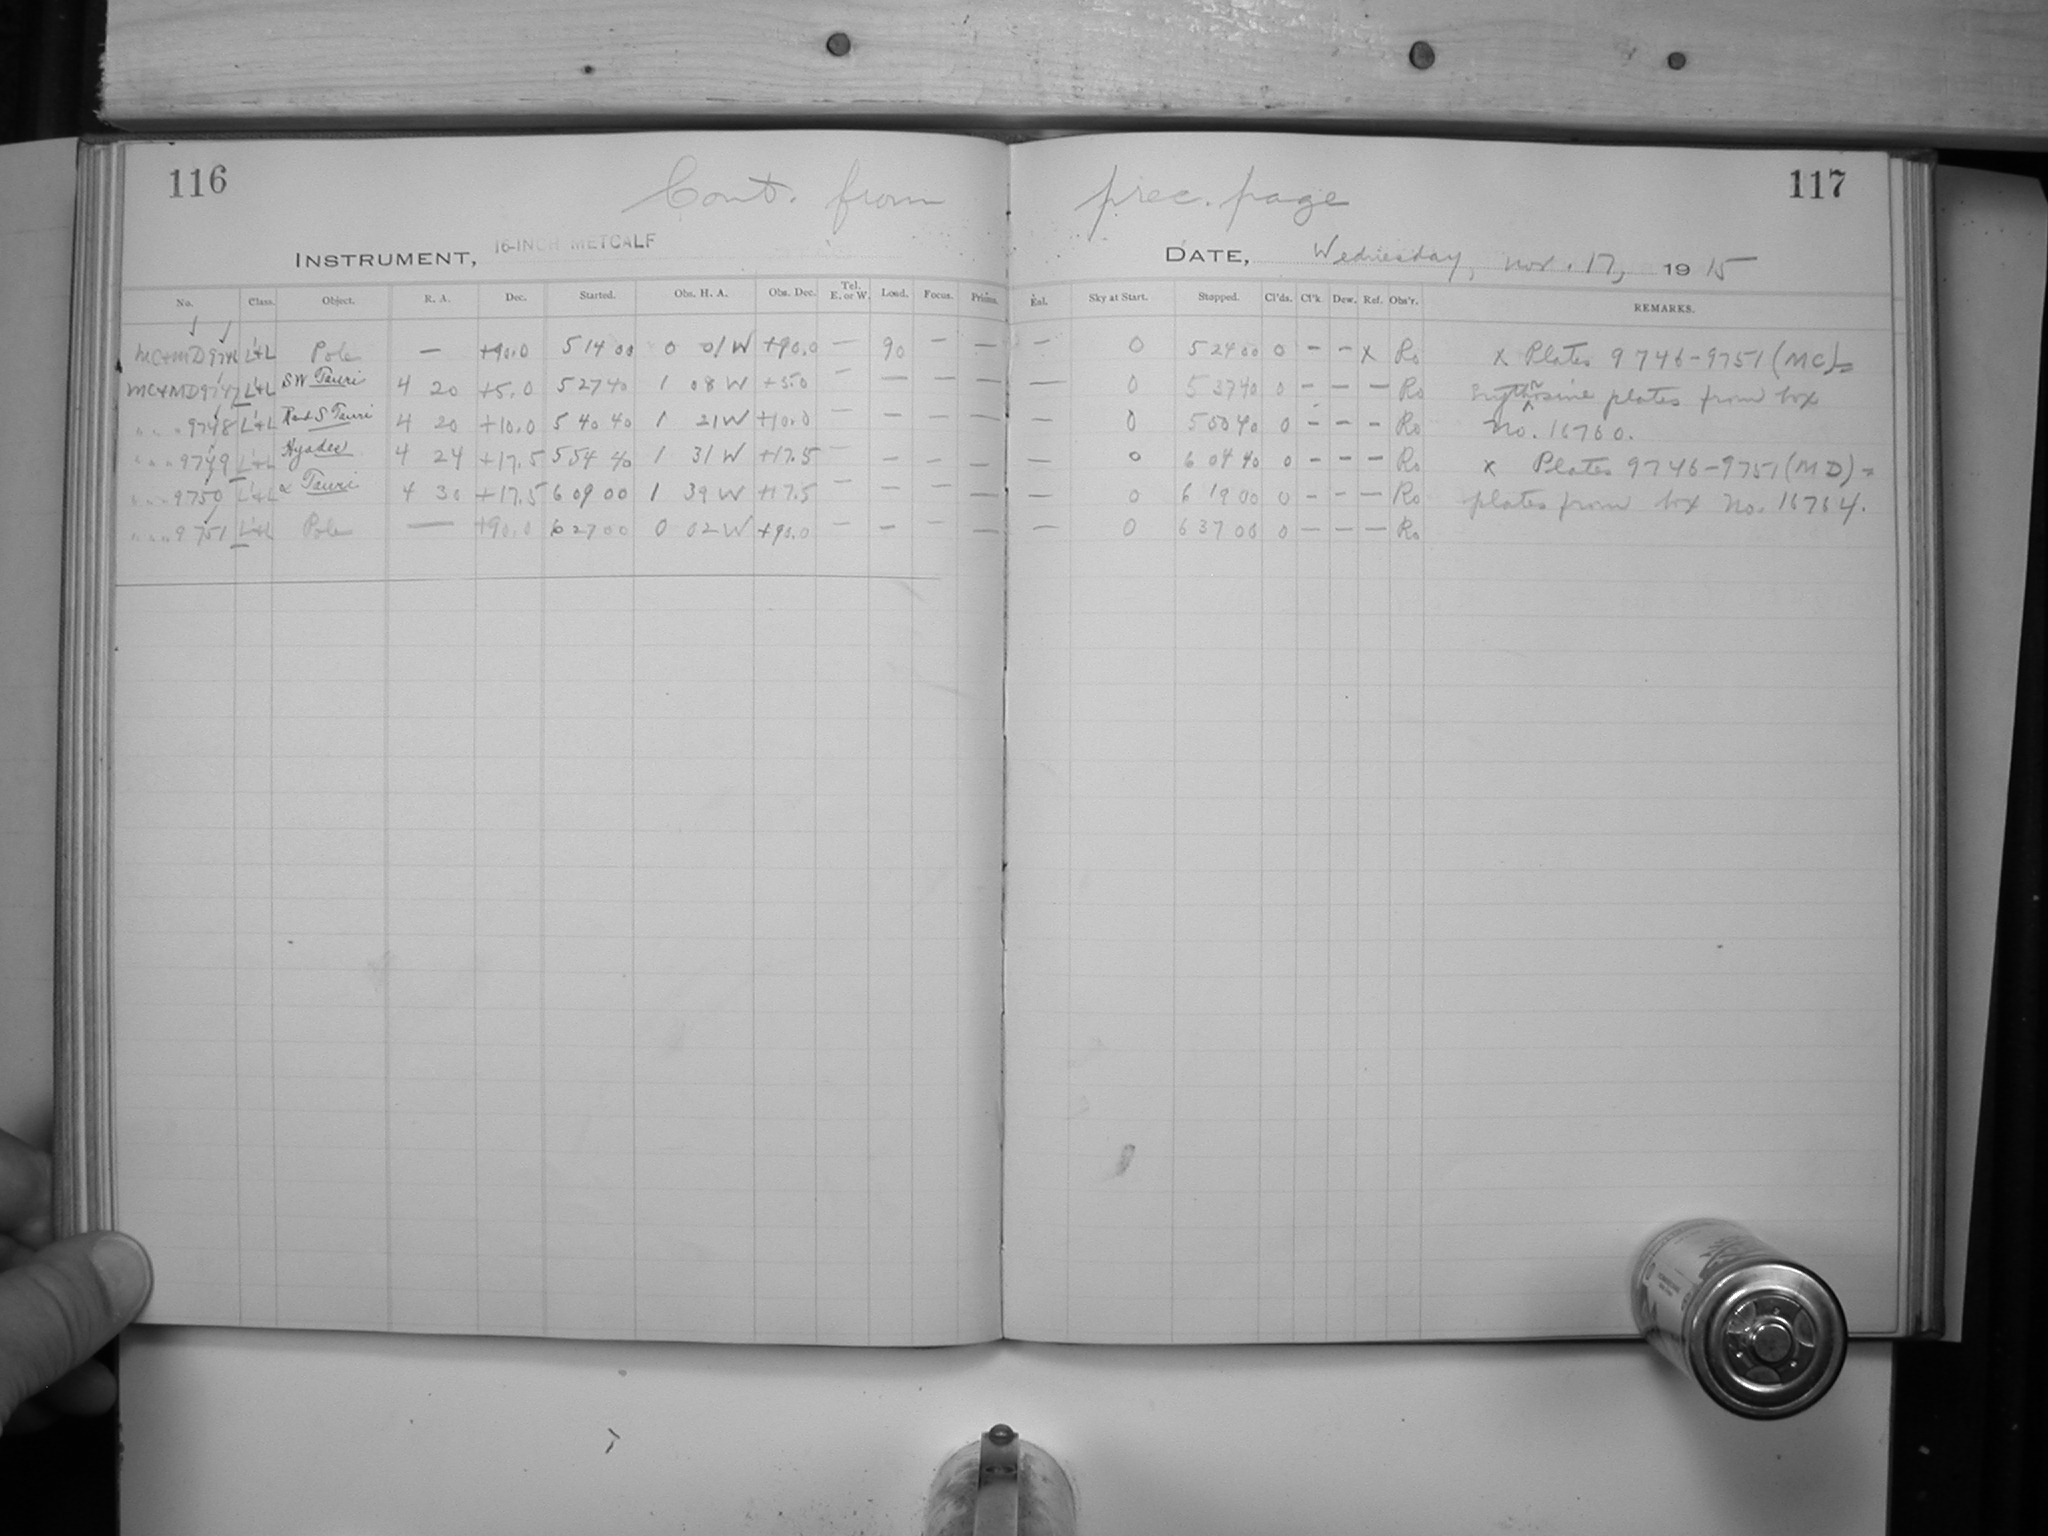 116 117
Cont. from prec. page
INSTRUMENT, 16-INCH METCALF DATE, Wednesday, Nov. 17, 1915
No. Class. Object. R. A. Dec. Started. Obs. H. A. Obs. Dec. Tel. E. or W. Load. Focus. Prisms. Enl. Sky at Start. Stopped. Cl'ds. Cl'k. Dew. Ref. Obs'r. REMARKS.
MC+MD 9746 L+L Pole — +90.0 5 14 00 0 01 W +90.0 — 90 — — — 0 5 24 00 0 – – x Ro x Plates 9746-9751 (MC) =
MC+MD 9747 L+L SW Tauri 4 20 +5.0 5 27 40 1 08 W +5.0 — — — — — 0 5 37 40 0 – – – Ro Erythrosine plates from box
" " " 9748 L+L R and S Tauri 4 20 +10.0 5 40 40 1 21 W +10.0 — — — — — 0 5 50 40 0 – – – Ro No. 16760.
" " " 9749 L+L Hyades 4 24 +17.5 5 54 40 1 31 W +17.5 – — — — — 0 6 04 40 0 – – – Ro x Plates 9746-9751 (MD) =
" " " 9750 L+L α Tauri 4 30 +17.5 6 09 00 1 39 W +17.5 – — — — — 0 6 19 00 0 – – – Ro plates from box No. 16764.
" " " 9751 L+L Pole — +90.0 6 27 00 0 02 W +90.0 – – — — — 0 6 37 00 0 – – – Ro